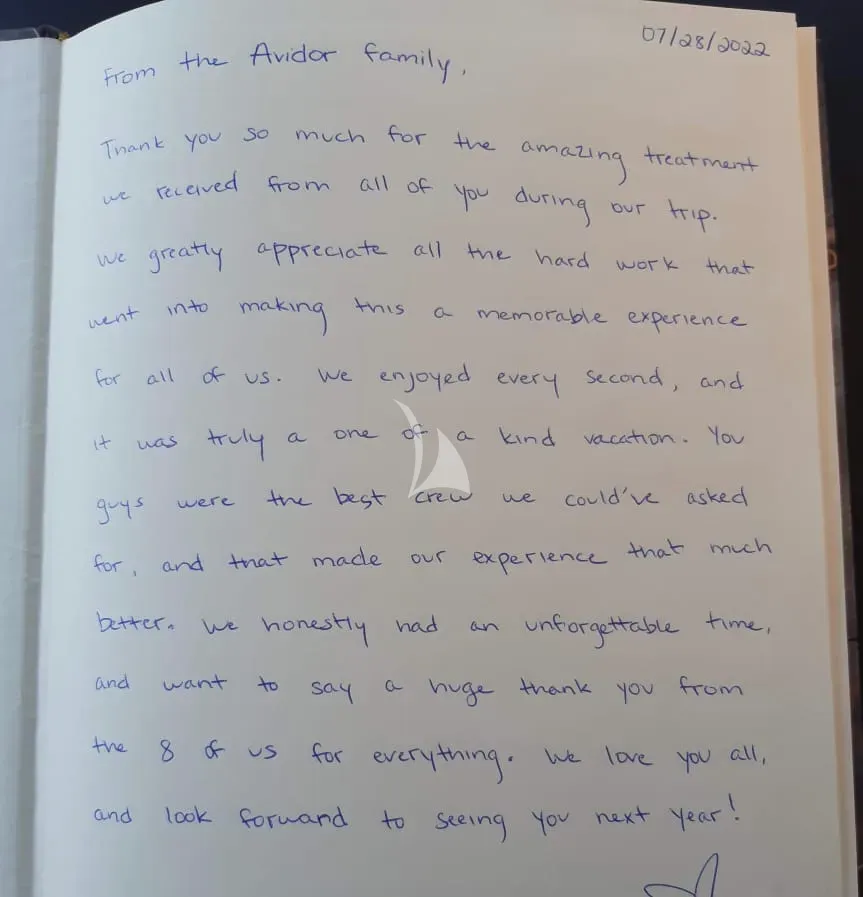 07/28/2022
From the Avidor family,
Thank you so much for the amazing treatment
we received from all of you during our trip.
We greatly appreciate all the hard work that
went into making this a memorable experience
for all of us. We enjoyed every second, and
it was truly a one of a kind vacation. You
guys were the best crew we could've asked
for, and that made our experience that much
better. We honestly had an unforgettable time,
and want to say a huge thank you from
the 8 of us for everything. We love you all,
and look forward to seeing you next year!